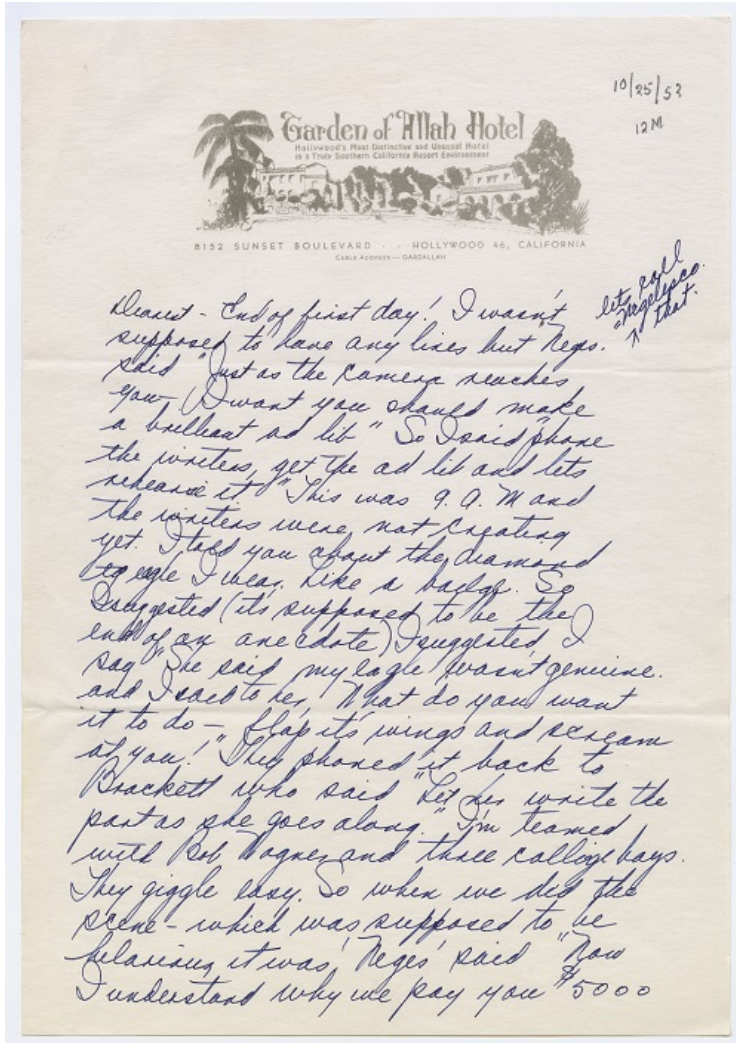 10/25/52
12M
Garden of Allah Hotel
Hollywood's Most Distinctive and Unusual Hotel
in a Truly Southern California Resort Environment
8152 SUNSET BOULEVARD · · HOLLYWOOD 46, CALIFORNIA
CABLE ADDRESS — GARDALLAH
lets call
"Negelesco"
that.
Dearest - End of first day! I wasn't
supposed to have any lines but "Neges.
said "Just as the camera reaches
you - I want you should make
a brilliant ad lib" So I said "phone
the writers, get the ad lib and lets
rehearse it" This was 9. A. M and
the writers were not creating
yet. I told you about the diamond
eagle I wear. Like a badge. So
I suggested (it's supposed to be the
end of an anecdote) I suggested I
say "She said my eagle wasn't genuine.
and I said to her, What do you want
it to do - flap it's wings and scream
at you!" They phoned it back to
Brackett who said "Let her write the
part as she goes along." I'm teamed
with Bob Wagner and three college boys.
They giggle easy. So when we did the
scene - which was supposed to be
hilarious, it was, 'Neges' said "Now
I understand why we pay you $5000